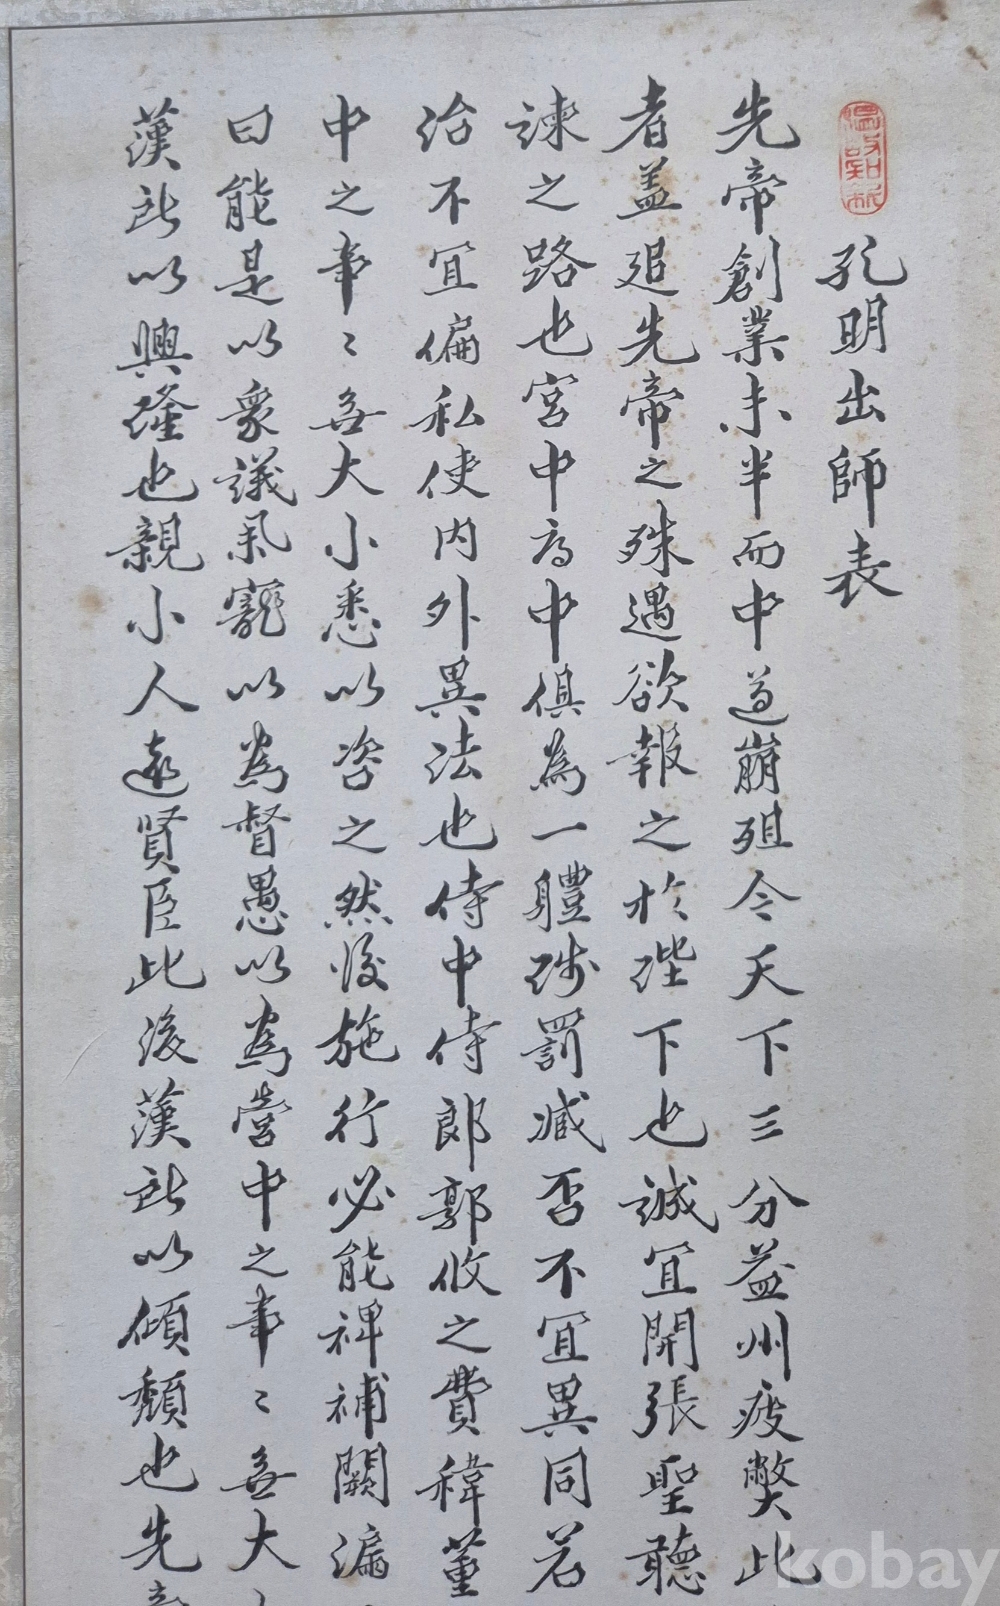 溫故知新
孔明出師表
先帝創業未半而中道崩殂今天下三分益州疲弊此
者盖追先帝之殊遇欲報之於陛下也誠宜開張聖聽
諫之路也宮中府中俱為一體陟罰臧否不宜異同若
治不宜偏私使內外異法也侍中侍郎郭攸之費禕董
中之事〻無大小悉以咨之然後施行必能裨補闕漏
曰能是以衆議舉寵以為督愚以為營中之事〻無大
漢所以興隆也親小人遠賢臣此後漢所以傾頹也先
kobay